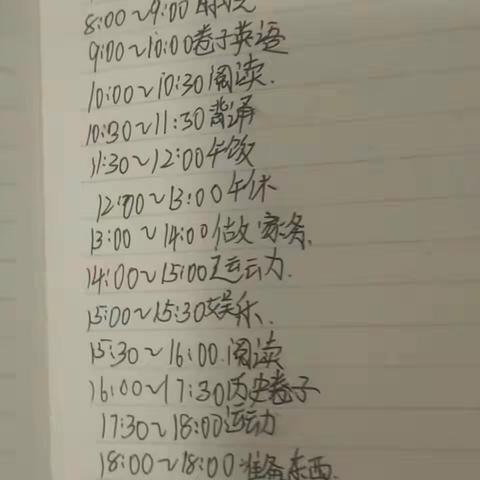 8:00~9:00
9:00~10:00卷子英语
10:00~10:30阅读.
10:30~11:30背诵
11:30~12:00午饭
12:00~13:00午休
13:00~14:00做家务.
14:00~15:00运动.
15:00~15:30娱乐.
15:30~16:00.阅读
16:00~17:30历史卷子
17:30~18:00运动
18:00~18:00准备东西.